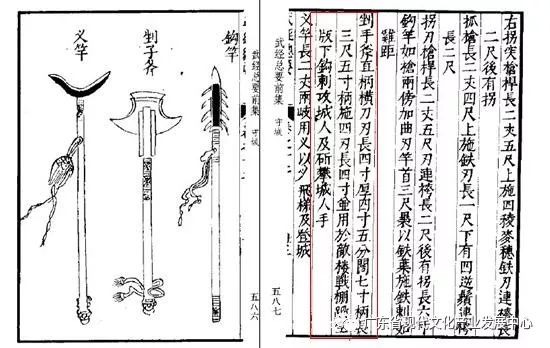 右拐突槍桿長二丈五尺上施四稜麥穗鉄刃連袴長
二尺後有拐
抓槍長二丈四尺上施鉄刃長一尺下有四逆鬚連袴
長二尺
拐刃槍桿長二丈五尺刃連袴長二尺後有拐長六寸
鈎竿如槍兩傍加曲刃竿首三尺裹以鉄葉施鉄刺如
雞距
剉手斧直柄橫刃刃長四寸厚四寸五分闊七寸柄長
三尺五寸柄施四刃長四寸並用於敵樓戰棚踏空
版下鈎刺攻城人及斫攀城人手
乂竿長二丈兩歧用乂以乂飛梯及登城
武经总要前集 守城
五八七
鈎竿
剉子斧
乂竿
武经总要前集 守城
五八六
广东省现代文化产业发展中心